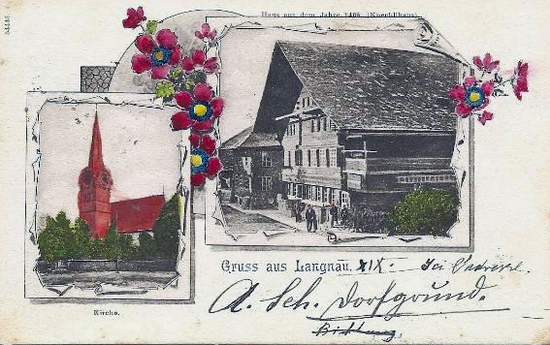 54446
Haus aus dem Jahre 1405 (Knepfihaus)
Gruss aus Langnau. XIX.
A. Sch. Dorfgrund.
Kirche.